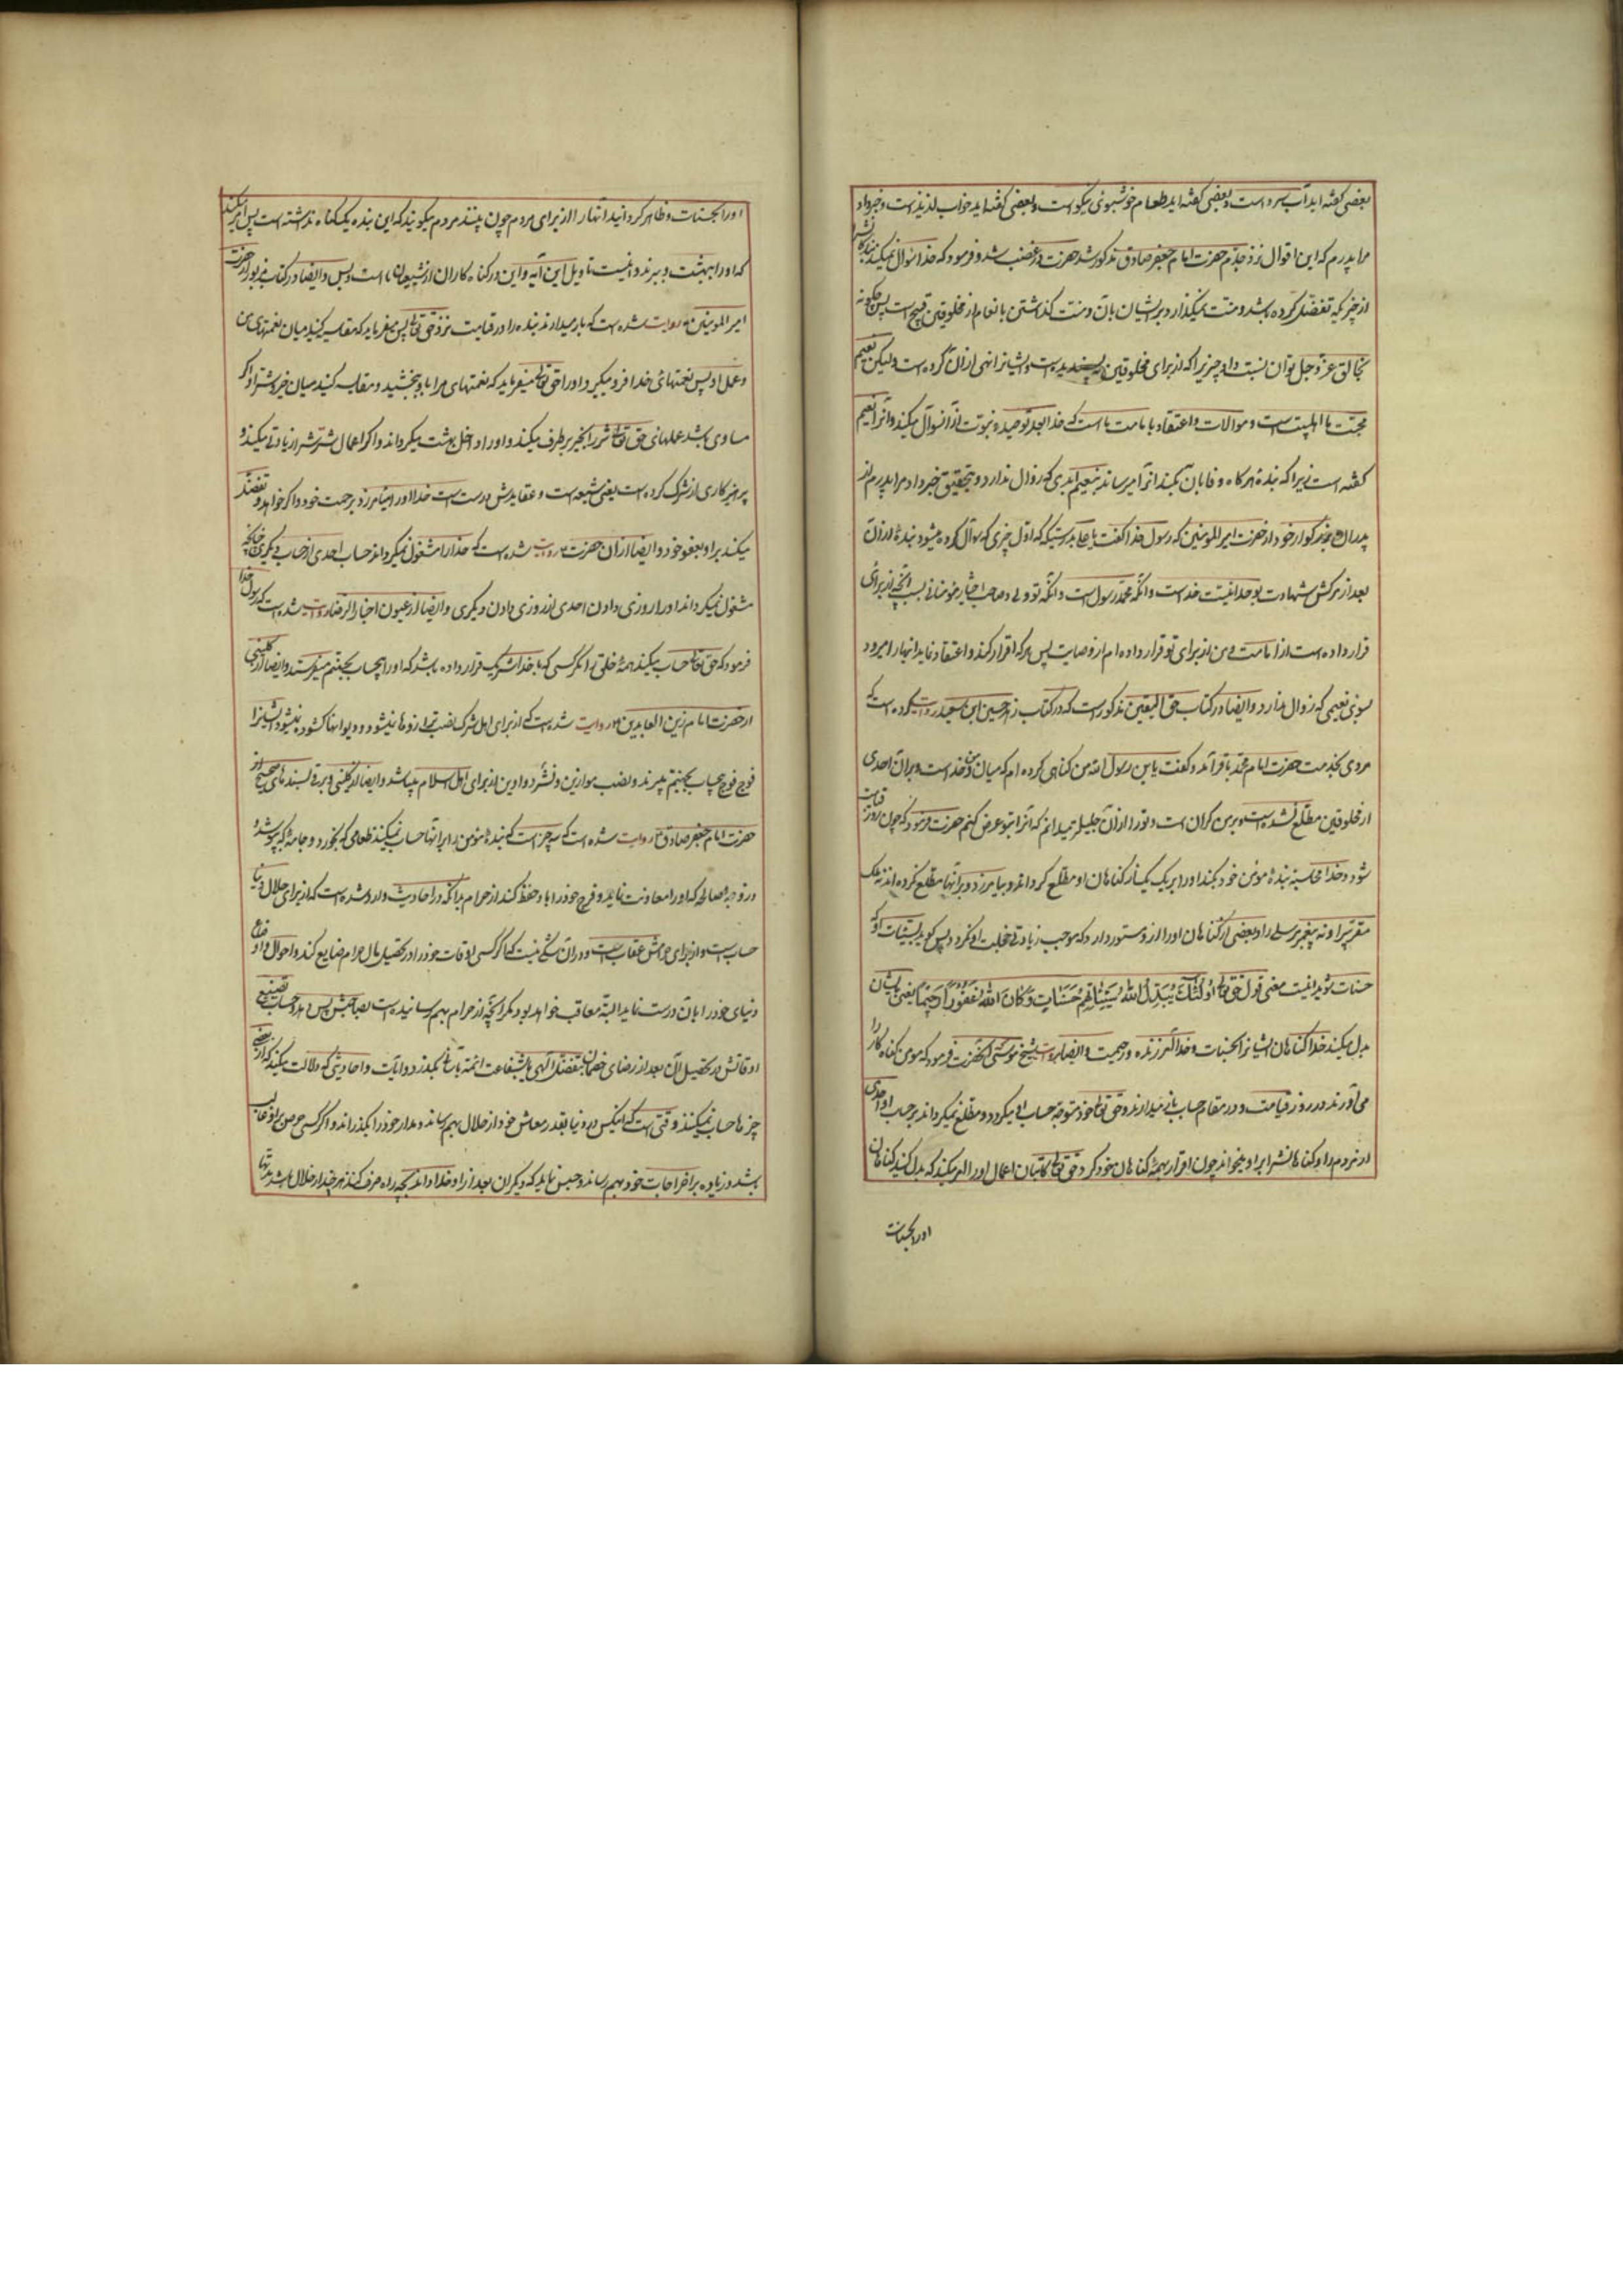 بعضی گفته اید آب سرد است و بعضی گفته اید طعام خوشبوئی نیکو است و بعضی گفته اید خواب لذیذ است و خبر داد
مرا پدرم که این اقوال نزد جدم حضرت امام جعفر صادق مذکور شد حضرت در غضب شد و فرمود که خدا سئوال نمیکند بندگانش را
از چیزیکه تفضل کرده باشد و منت نمیگذارد بر ایشان بآن و منت گذاشتن بانعام از مخلوقین قبیح است پس چگونه
بخالق عز و جل توان نسبت داد چیزیرا که از برای مخلوقین نه پسندیده است و ایشانرا نهی ازان کرده است ولیکن نعیم
محبت ما اهلبیت است و موالات و اعتقاد بامامت ما است که خدا بعد توحید و نبوت ازان سئوال میکند و آنرا نعیم
گفته است زیرا که بنده هرگاه وفا بآن بکند آنرا میرساند بنعیم ابدی که زوال ندارد و بتحقیق خبر داد مرا پدرم از
پدران بزرگوار خود از حضرت امیر المومنین که رسول خدا گفت یا علی بدرستیکه اول چیزی که سئوال کرده میشود بنده ازان
بعد از مرگش شهادت بوحدانیت خداست و آنکه محمد رسول است و آنکه تو ولی و صاحب اختیار مومنانی بسبب آنچه از برای
قرار داده است از امامت و من از برای تو قرار داده ام از وصایت پس هر که اقرار کند و اعتقاد نماید اینها را میرود
بسوی نعیمی که زوال ندارد و ایضا در کتاب حق الیقین مذکور است که در کتاب زهد حسین ابن سعید روایت کرده است که
مردی بخدمت حضرت امام محمد باقر آمد و گفت یابن رسول الله من گناهی کرده ام که میان من و خداست و بران احدی
از مخلوقین مطلع نشده است و برمن گران است و تو را ازان جلیل تر میدانم که آنرا بتو عرض کنم حضرت فرمود که چون روز قیامت
شود و خدا محاسبه بنده مومن خود بکند او را بر یک یک از گناهان او مطلع گرداند و بیامرزد و بر آنها مطلع نکرده اند نه ملک
مقرب را و نه پیغمبر مرسلی را و بعضی از گناهان او را از او مستور دارد که موجب زیادتی خجلت او نگردد پس گوید بسیئات او که
حسنات شوید اینست معنی قول حق تعالی اولئک یبدل الله سیئاتهم حسنات و کان الله غفورا رحیما یعنی ایشان
بدل میکند خدا گناهان ایشانرا بحسنات و خدا آمرزنده و رحیمست و ایضا روایت شیخ طوسی آنحضرت فرمود که مومن گناه کار را
می آورند در روز قیامت و در مقام حساب باز میدارند و حق تعالی خود متوجه حساب او میگردد و مطلع نمیگرداند بر حساب او احدی
از مردم را و گناهانش را بر او میخواند چون اقرار بهمه گناهان خود کرد حق تعالی کاتبان اعمال او را امر میکند که بدل کنید گناهان
او را بحسنات
او را بحسنات و ظاهر گردانید آنها را از برای مردم چون بینند مردم میگویند که این بنده یک گناه نداشته است پس امر میکند
که او را ببهشت ببرند و اینست تاویل این آیه و این در گناه کاران از شیعیان ما است و بس و ایضا در کتاب مزبور از حضرت
امیر المومنین روایت شده است که باز میدارند بنده را در قیامت نزد حق تعالی پس میفرماید که مقایسه کنید میان نعمتهای من
و عمل او پس نعمتهای خدا فرو میگیرد او را حق تعالی میفرماید که نعمتهای مرا باو ببخشید و مقایسه کنید میان خیر و شر او اگر
مساوی باشد عملهای حق تعالی شر را بخیر برطرف میکند و او را داخل بهشت میگرداند و اگر اعمال شرش زیادتی میکند و
پرهیزکاری از شرک کرده است یعنی شیعه است و عقایدش درست است خدا او را میامرزد برحمت خود و اگر خواهد تفضل
میکند بر او بعفو خود و ایضا ازان حضرت روایت شده است که خدا را مشغول نمیگرداند حساب احدی از حساب دیگری چنانچه
مشغول نمیگرداند او را روزی دادن احدی از روزی دادن دیگری و ایضا از عیون اخبار الرضا روایت شده است که رسول خدا
فرمود که حق تعالی حساب میکند همه خلق را مگر کسی که با خدا شریک قرار داده باشد که او را بیحساب بجهنم میفرستند و ایضا از کلینی
از حضرت امام زین العابدین روایت شده است که از برای اهل شرک نصب ترازوها نمیشود و دیوانها گشوده نمیشود ایشانرا
فوج فوج بیحساب بجهنم میبرند و نصب موازین و نشر دواوین از برای اهل اسلام میباشد و ایضا از کلینی و برقی بسندهای صحیح از
حضرت امام جعفر صادق روایت شده است که سه چیز است که بنده مومن را بر آنها حساب نمیکنند طعامی که بخورد و جامه که بپوشد
و زوجه صالحه که او را معاونت نماید و فرج خود را باو حفظ کند از حرام بدانکه در احادیث وارد شده است که از برای حلال دنیا
حساب است و از برای حرامش عقاب است و دران شکی نیست که اگر کسی اوقات خود را در تحصیل مال حرام ضایع کند و احوال و اوضاع
دنیای خود را بآن درست نماید البته معاقب خواهد بود مگر آنچه از حرام بهم رسانیده است بصاحبش پس دهد و حساب تضییع
اوقاتش در تحصیل آن بعد از رضای خصمان بتفضل الهی یا بشفاعت ائمه بگذرد و آیات و احادیثی که دلالت میکند که از بعضی
چیزها حساب نمیکنند وقتی است که اینکس در دنیا بقدر معاش خود از حلال بهم رساند و مدار خود را بگذراند و اگر کسی حرص بر او غالب
باشد و زیاده بر اخراجات خود بهم رساند و حبس نماید که دیگران بعد از او خدا داند بچه راه صرف کنند هر چند از حلال باشد